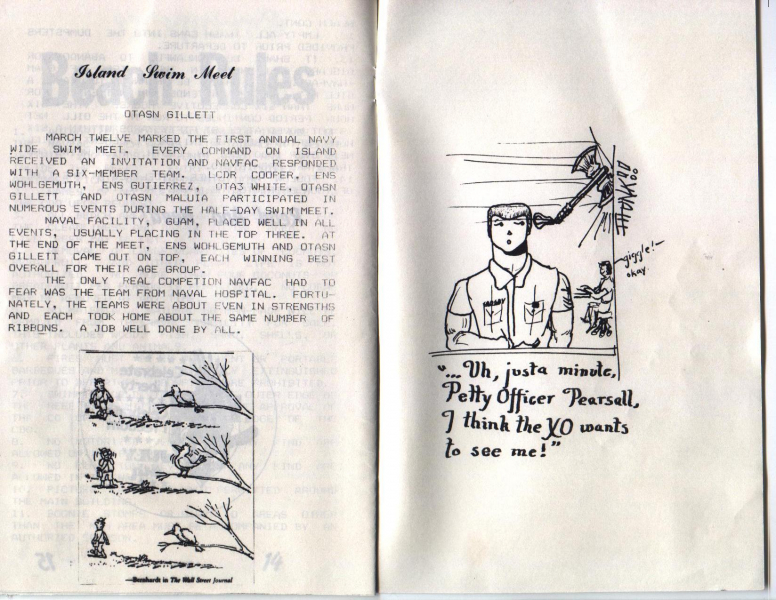 Island Swim Meet
OTASN GILLETT
MARCH TWELVE MARKED THE FIRST ANNUAL NAVY
WIDE SWIM MEET. EVERY COMMAND ON ISLAND
RECEIVED AN INVITATION AND NAVFAC RESPONDED
WITH A SIX-MEMBER TEAM. LCDR COOPER, ENS
WOHLGEMUTH, ENS GUTIERREZ, OTA3 WHITE, OTASN
GILLETT AND OTASN MALUIA PARTICIPATED IN
NUMEROUS EVENTS DURING THE HALF-DAY SWIM MEET.
NAVAL FACILITY, GUAM, PLACED WELL IN ALL
EVENTS, USUALLY PLACING IN THE TOP THREE. AT
THE END OF THE MEET, ENS WOHLGEMUTH AND OTASN
GILLETT CAME OUT ON TOP, EACH WINNING BEST
OVERALL FOR THEIR AGE GROUP.
THE ONLY REAL COMPETION NAVFAC HAD TO
FEAR WAS THE TEAM FROM NAVAL HOSPITAL. FORTU-
NATELY, THE TEAMS WERE ABOUT EVEN IN STRENGTHS
AND EACH TOOK HOME ABOUT THE SAME NUMBER OF
RIBBONS. A JOB WELL DONE BY ALL.
—Bernhardt in The Wall Street Journal
14
giggle!—
okay
"...Uh, justa minute,
Petty Officer Pearsall,
I think the XO wants
to see me!"